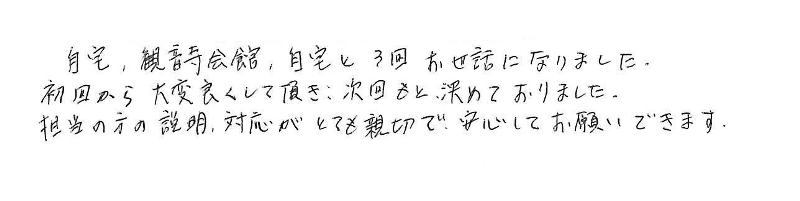 自宅，観音寺会館，自宅と3回お世話になりました．
初回から大変良くして頂き、次回もと、決めておりました．
担当の方の説明，対応がとても親切で、安心してお願いできます．